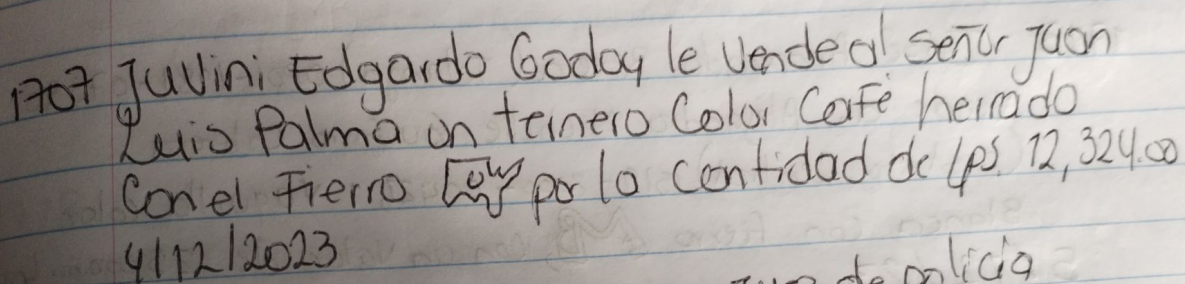 1707 Juvini Edgardo Godoy le vende al señor Juan
Luis Palma un ternero Color Cafe herrado
Con el Fierro por la cantidad de Lps. 12,324.00
4/12/2023
de policia